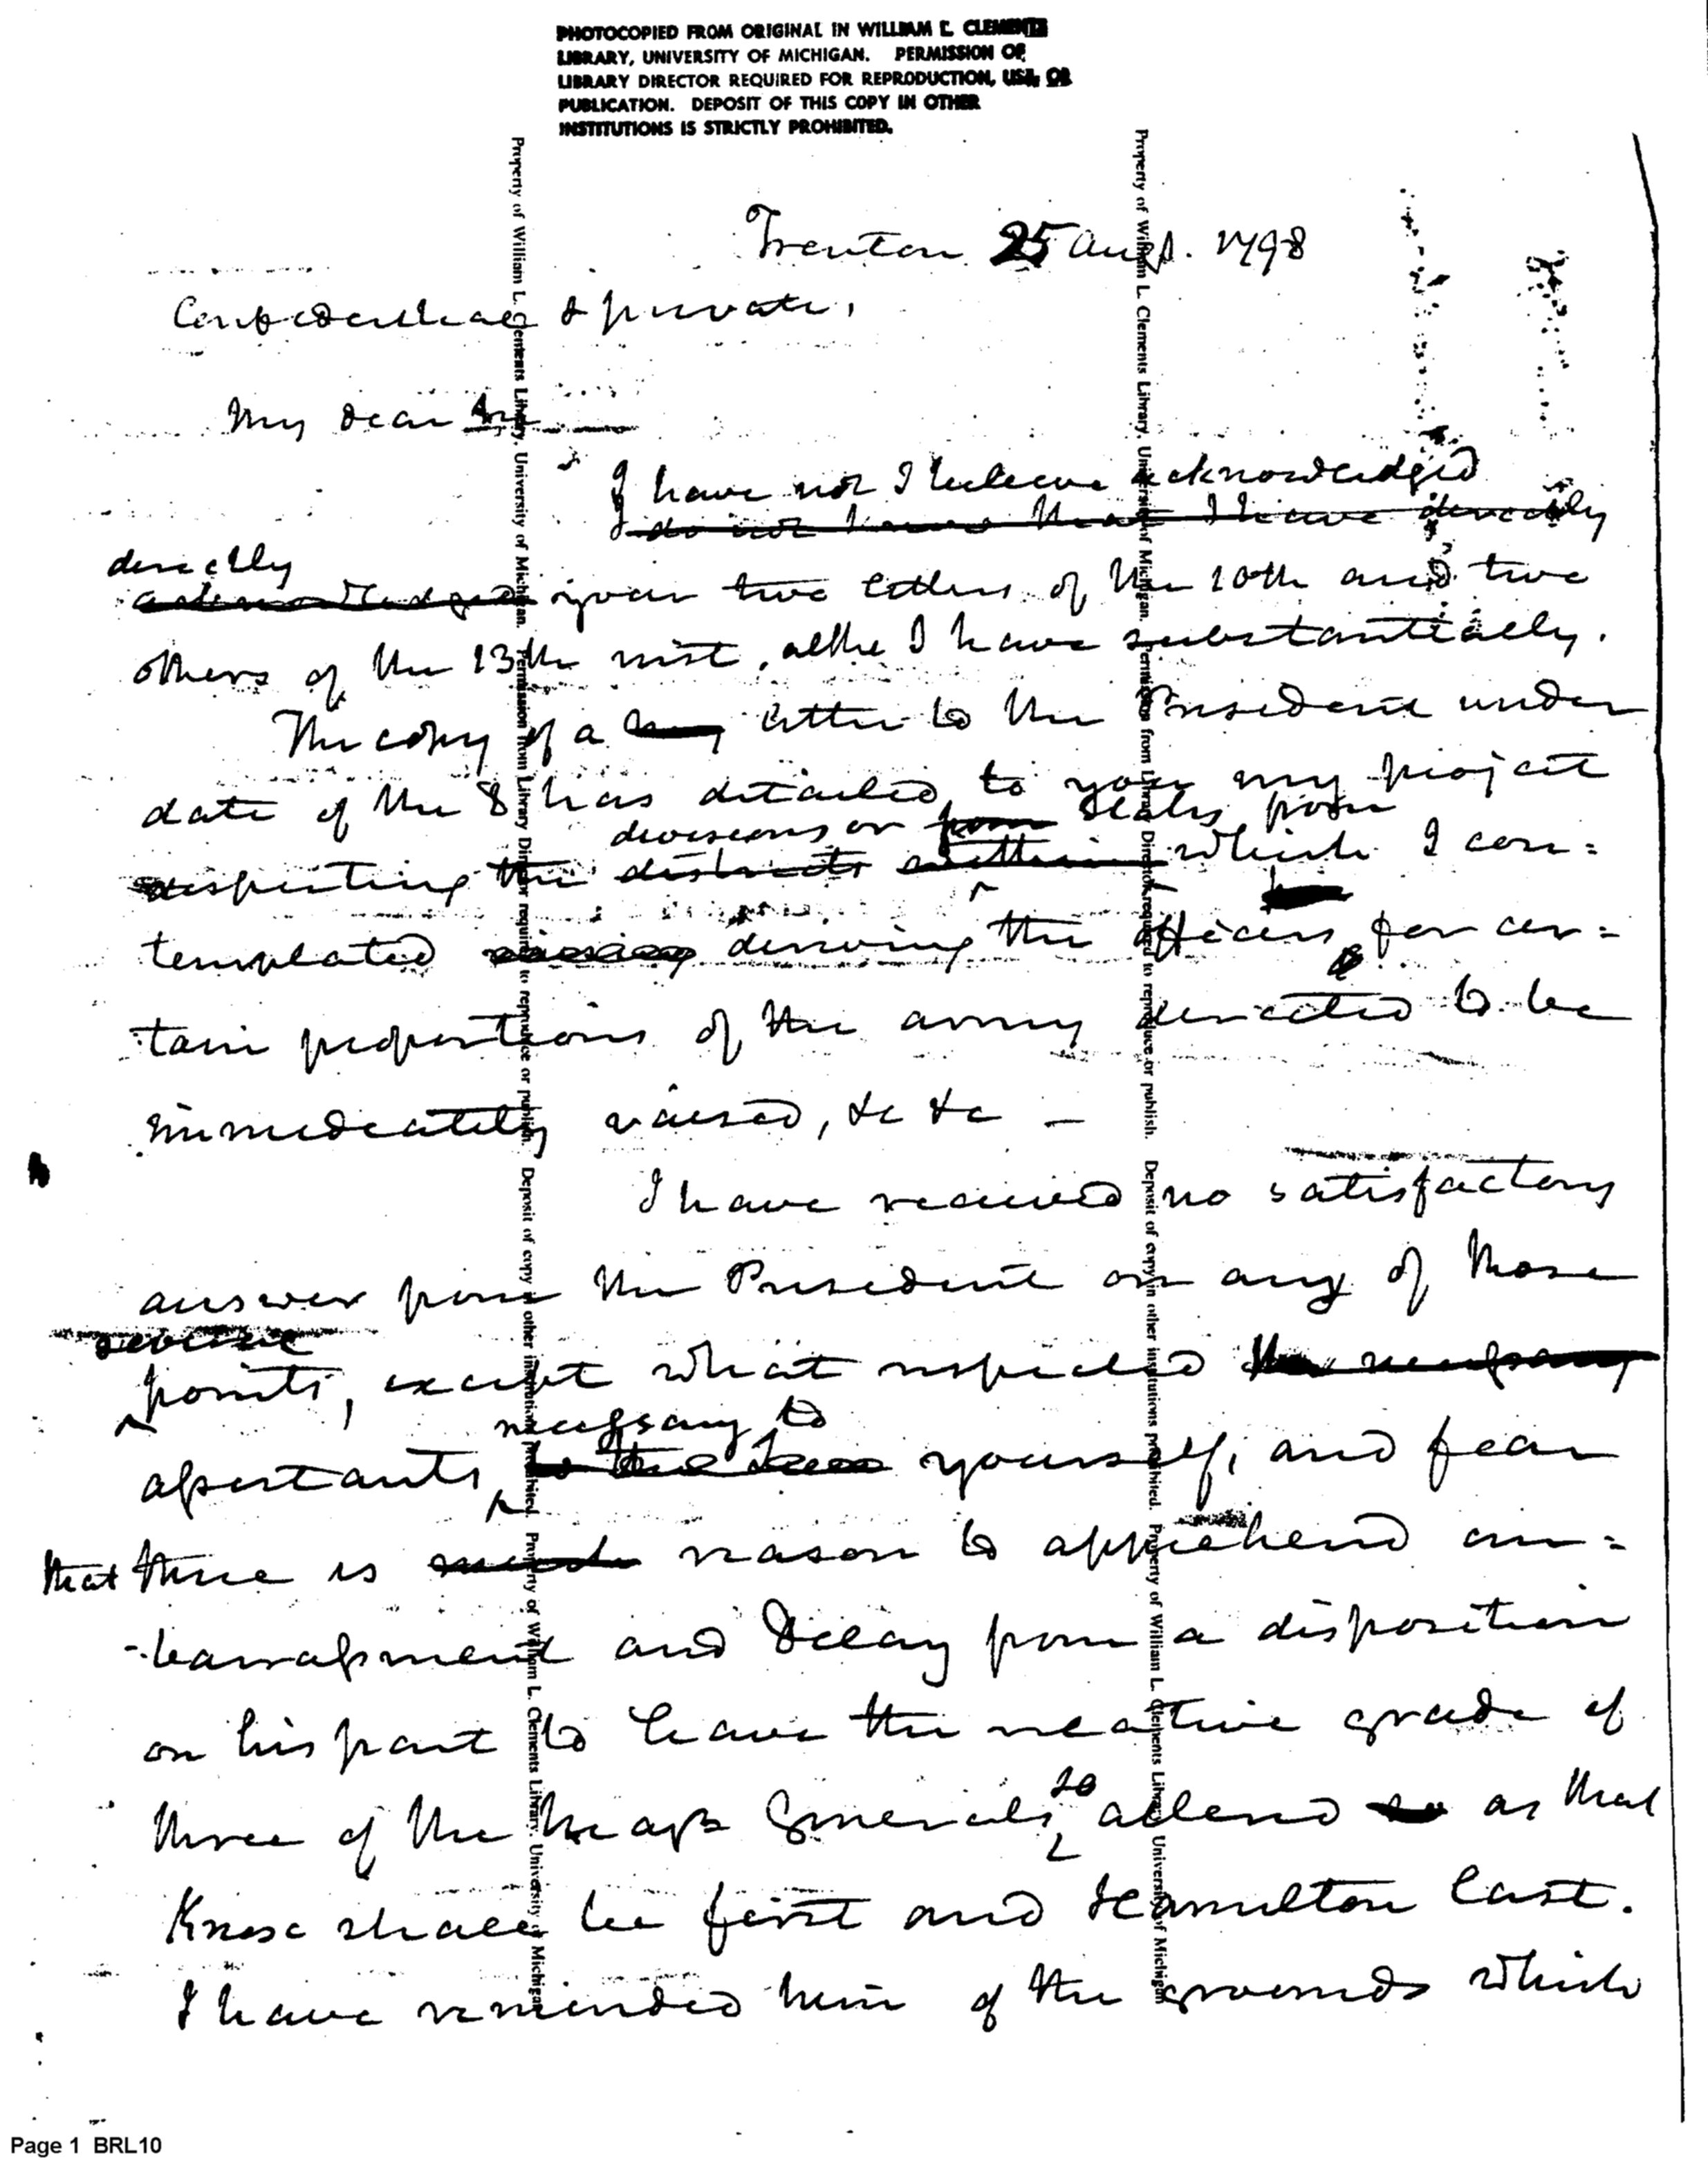 PHOTOCOPIED FROM ORIGINAL IN WILLIAM L. CLEMENTS
LIBRARY, UNIVERSITY OF MICHIGAN. PERMISSION OF
LIBRARY DIRECTOR REQUIRED FOR REPRODUCTION, USE, OR
PUBLICATION. DEPOSIT OF THIS COPY IN OTHER
INSTITUTIONS IS STRICTLY PROHIBITED.
Trenton 25 Augt. 1798
Confidential & private,
My dear Sir
I have not I believe acknowledged
I do not know that I have directly
directly
acknowledged your two letters of the 10th and two
others of the 13th inst, altho I have substantially.
The copy of a letter to the President under
date of the 8 has detailed to you my project
divisions or from States from
respecting the districts within which I con=
templated raising deriving the officers for cer=
tain proportions of the army directed to be
immediately raised, &c &c —
I have received no satisfactory
answer from the President on any of those
points, except what respected the necessary
necessary to
assistants yourself, and fear
that there is much reason to apprehend em=
-barrassment and delay from a disposition
on his part to leave the relative grade of
so
three of the Majr Generals, attend so as that
Knox shall be first and Hamilton last.
I have reminded him of the grounds which
Property of William L. Clements Library, University of Michigan. Permission from Library Director required to reproduce or publish. Deposit of copy in other institutions prohibited. Property of William L. Clements Library, University of Michigan
Property of William L. Clements Library, University of Michigan. Permission from Library Director required to reproduce or publish. Deposit of copy in other institutions prohibited. Property of William L. Clements Library, University of Michigan
Page 1 BRL10